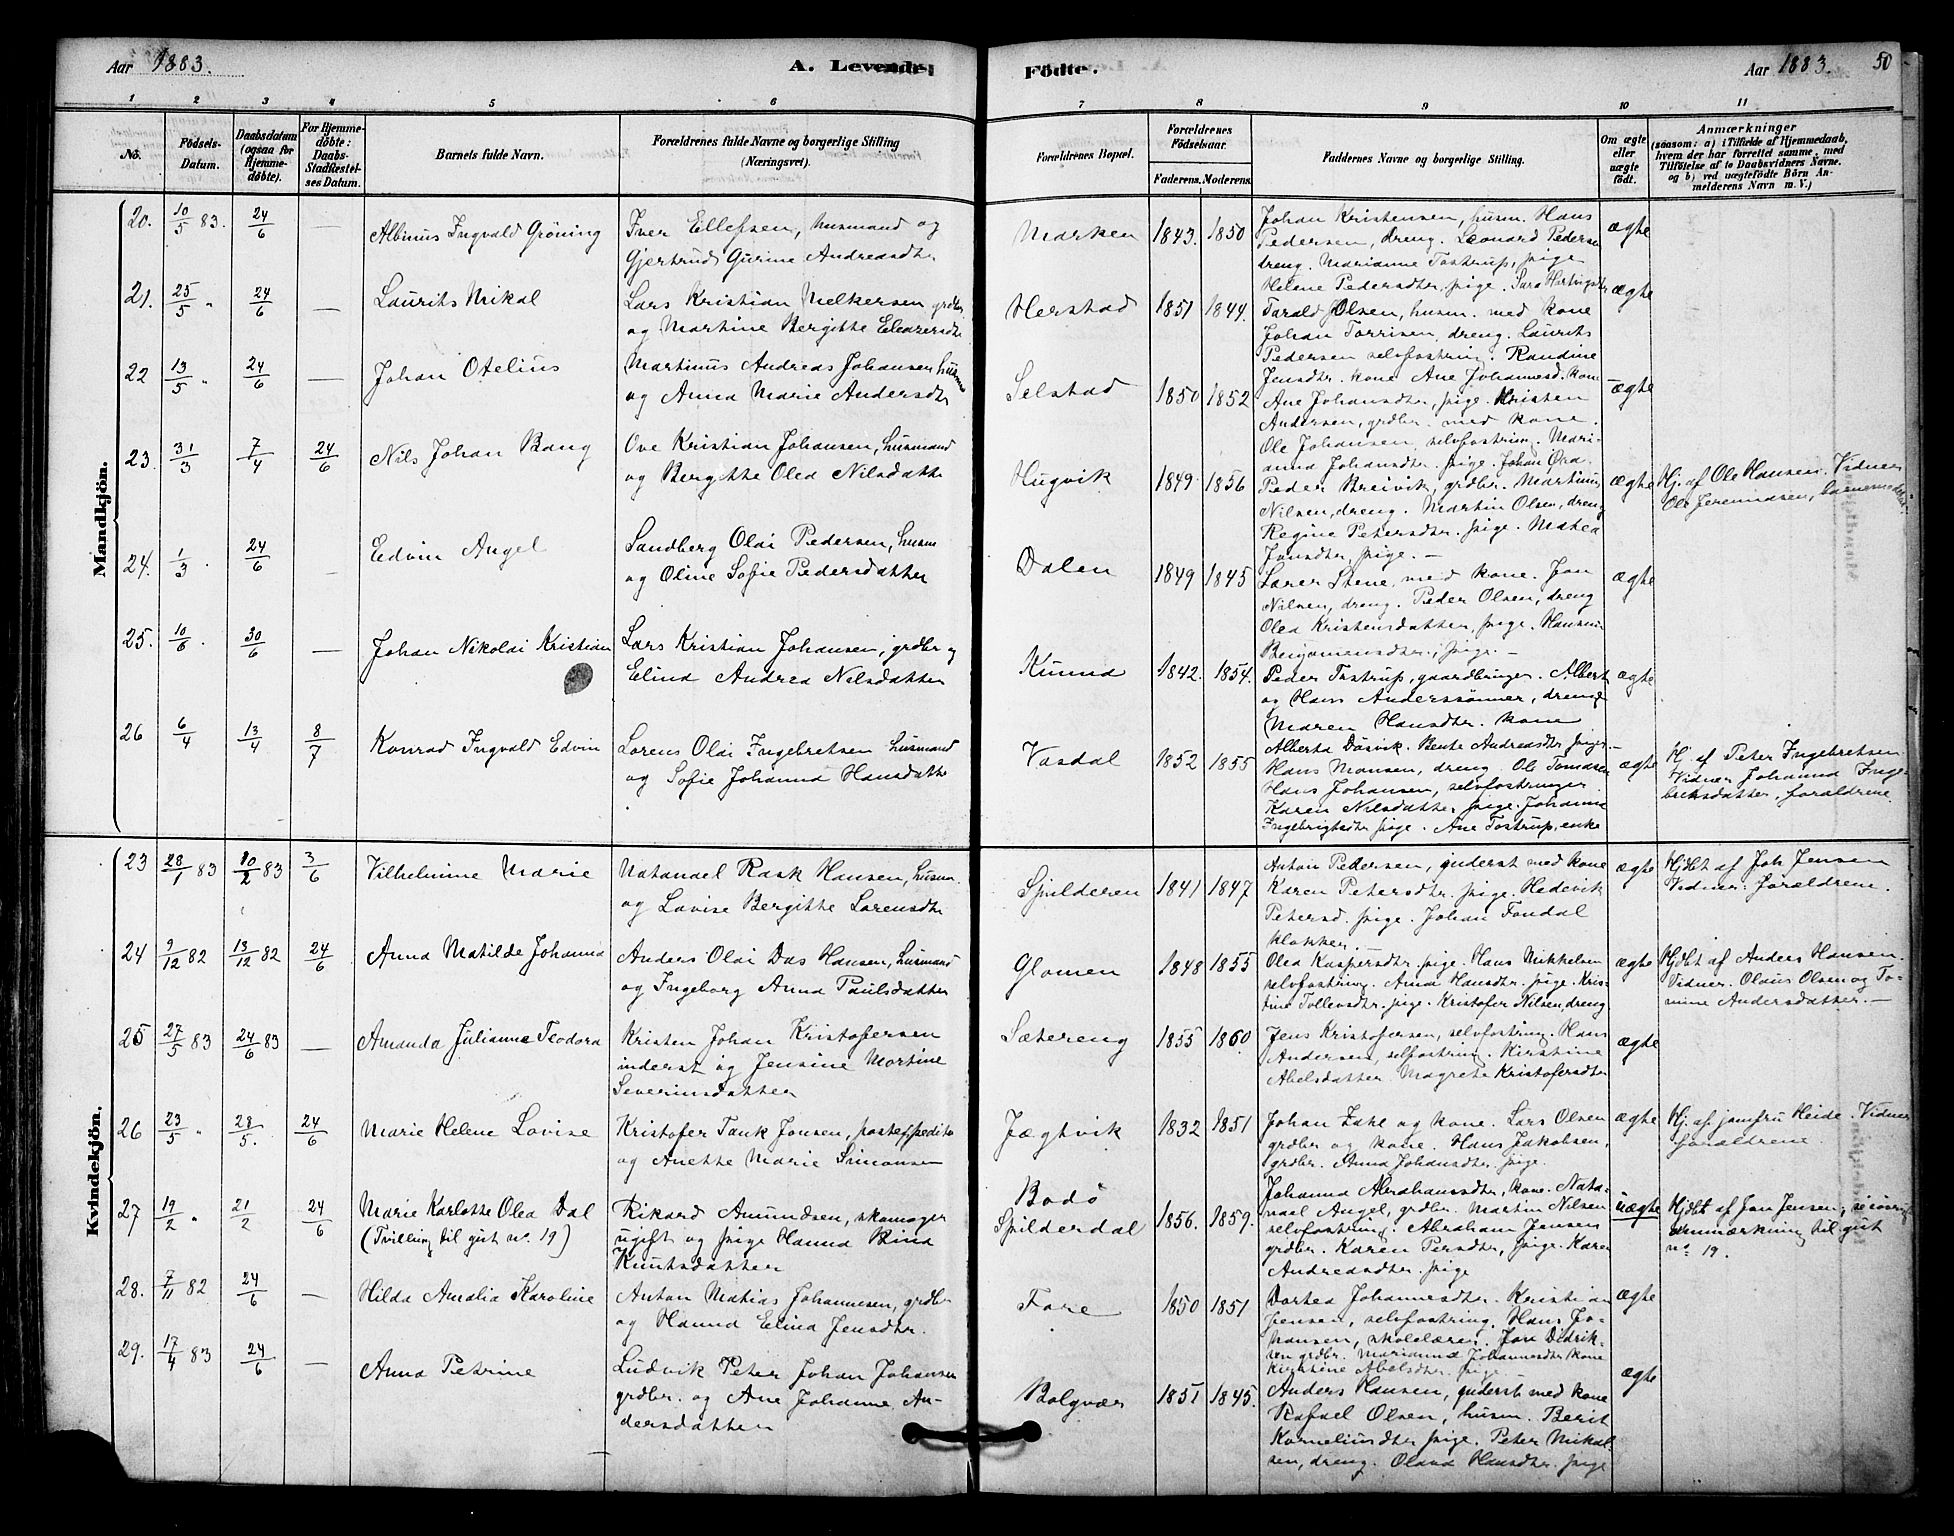 Aar 1883. A. Levende Födte. Aar 1883. 50
1 2 3 4 5 6 7 8 9 10 11
No. Födsels-Datum. Daabsdatum (ogsaa for Hjemme-döbte). For Hjemme-döbte: Daabs-Stadfæstel-ses Datum. Barnets fulde Navn. Forældrenes fulde Navne og borgerlige Stilling (Næringsvei). Forældrenes Bopæl. Forældrenes Födselsaar. Faderens. Moderens. Faddernes Navne og borgerlige Stilling. Om ægte eller uægte födt. Anmærkninger (saasom: a) i Tilfælde af Hjemmedaab, hvem der har forrettet samme, med Tilföielse af to Daabsvidners Navne. og b) ved uægtefödte Börn An-melderens Navn m. V.)
Mandkjön.
20. 10/5 83. 24/6 — Albinus Ingvald Gröning
Iver Ellefsen, husmand og
Gjertrud Gurine Andreasdtr
Marken 1843. 1850
Johan Kristensen, husm. Hans
Pedersen, dreng. Leonard Pedersen
dreng. Marianne Tostrup, pige
Helene Pedersdtr, pige.
ægte
21. 25/5 " 24/6 — Laurits Mikal
Lars Kristian Melkersen grdbr.
og Martine Bergitte Eleazersdtr
Herstad 1851 1844.
Tarald Olsen, husm. med kone
Johan Torrisen, dreng. Laurits
Pedersen selvfostring. Randine
ægte
22 13/5 " 24/6 — Johan Otelius
Martinus Andreas Johansen husm
og Anna Marie Andersdtr
Selstad 1850 1852
Jensdtr. kone Ane Johannesd. kone
Ane Johansdtr, pige. Kristen
Andersen, grdbr. med kone.
ægte
23. 31/3 7/4 24/6 Nils Johan Bang
Ove Kristian Johansen, husmand
og Bergitte Olea Nilsdatter
Hugvik 1849 1856
Ole Johansen, selvfostring. Mari-
anna Johansdtr. pige. Johan
Peder Breivik, grdbr. Martinus
Nilsen, dreng. Martin Olsen, dreng
Regine Petersdtr. pige. Matea
Jonsdtr, pige. —
ægte
Hj. af Ole Hansen. Vidner
Ole Jeremiasen,
24. 1/3 24/6 — Edvin Angel
Sandberg Olai Pedersen, husm
og Oline Sofie Pedersdatter
Dalen 1849 1845
Lærer Stene med kone. Jon
Nilsen, dreng. Peder Olsen, dreng
Olea Kristensdatter, pige.
Benjamensdtr. pige. —
ægte
25. 10/6 30/6 — Johan Nikolai Kristian
Lars Kristian Johansen, grdbr og
Elina Andrea Nilsdatter
Kunna 1842. 1854.
Peder Tostrup, gaardbruger. Albert
og Hans Anderssönner, drenge
Maren Hansdtr. kone
ægte
26 6/4 13/4 8/7 Konrad Ingvald Edvin
Lorens Olai Ingebretsen husmand
og Sofie Johanna Hansdatter
Vasdal 1852 1855
Alberta Dösvik. Bente Andreasdtr piger —
Hans Monsen, dreng. Ole Tomasen
Hans Johansen, selvfostringer
Karen Nilsdatter, pige. Johanna
Ingebrigtsdtr pige. Ane Tostrup, enke
ægte
Hj. af Peter Ingebretsen
Vidner Johanna Inge-
bretsdatter, forældrene.
Kvindekjön.
23 28/1 83 10/2 83 3/6 Vilhelmine Marie
Natanael Rask Hansen, husm.
og Lovise Bergitte Lorensdtr
Spilderen 1841 1847
Anton Pedersen, inderst med kone
Karen Petersdtr. pige. Hedevik
Petersd. pige. Johan Fondal
klokker.
ægte
Hjdbt af Joh Jensen
Vidner: forældrene.
24 9/12 82 13/12 82 24/6 Anna Matilde Johanna
Anders Olai Das Hansen, husmand
og Ingeborg Anna Paulsdatter
Glomen 1848 1855
Olea Kaspersdtr. pige. Hans Mikkelsen
selvfostring. Anna Hansdtr. pige. Kris-
tine Tollevsdtr. pige. Kristofer Nilsen, dreng
ægte
Hjdbt af Anders Hansen.
Vidner. Olaus Olsen og To-
mine Andersdatter. —
25 27/5 83 24/6 83 — Amanda Julianna Teodora
Kristen Johan Kristofersen
inderst og Jensine Martine
Severinsdatter
Sætereng 1855 1860
Jens Kristofersen, selvfostring. Hans
Andersen, selfostring. Kirstine
Abelsdatter. Magrete Kristofersdtr
ægte
26 23/5 " 28/5. 24/6 Marie Helene Lovise
Kristofer Tank Jensen, postexpeditör
og Anette Marie Simonsen
Jægtvik 1832 1851
Johan Zahl og kone. Lars Olsen
grdbr og kone. Hans Jakobsen,
grdbr. Anna Johansdtr. pige.
ægte
Hj. af jomfru Heide. Vidner
forældrene
27 19/2 " 21/2 24/6 Marie Karlotte Olea Dal
(Tvilling til gut no. 19)
Rikard Amundsen, skomager
ugift og pige Hanna Bina
Knutsdatter
Bodö
Spilderdal 1856. 1859.
Johanna Abrahamsdtr, kone. Nata-
nael Angel, grdbr. Martin Nilsen
selvfostring. Abraham Jensen
grdbr. Karen Persdtr, pige. Karen
Andreasdtr. pige
uægte
Hjdbt af Jon Jensen, se
anmærkning til gut
no 19.
28. 7/11 82 24/6 — Hilda Amalia Karoline
Anton Matias Johannesen, grdbr
og Hanna Elina Jensdtr.
Fore 1850 1851
Dortea Johannesdtr. Kristian
Jensen, selvfostring. Hans Jo-
hansen, skolelærer. Jon Didrik-
sen grdbr. Marianna Johannesdtr kone
Kirstine Abelsdtr, pige
ægte
29. 17/4 83 24/6 — Anna Petrine
Ludvik Peter Johan Johansen
grdbr. og Ane Johanna An-
dersdatter
Bolgvær 1851 1845.
Anders Hansen, inderst med kone
Rafael Olsen, husm. Berit
Korneliusdtr pige. Peter Mikal-
sen, dreng. Olava Hansdtr. pige
ægte